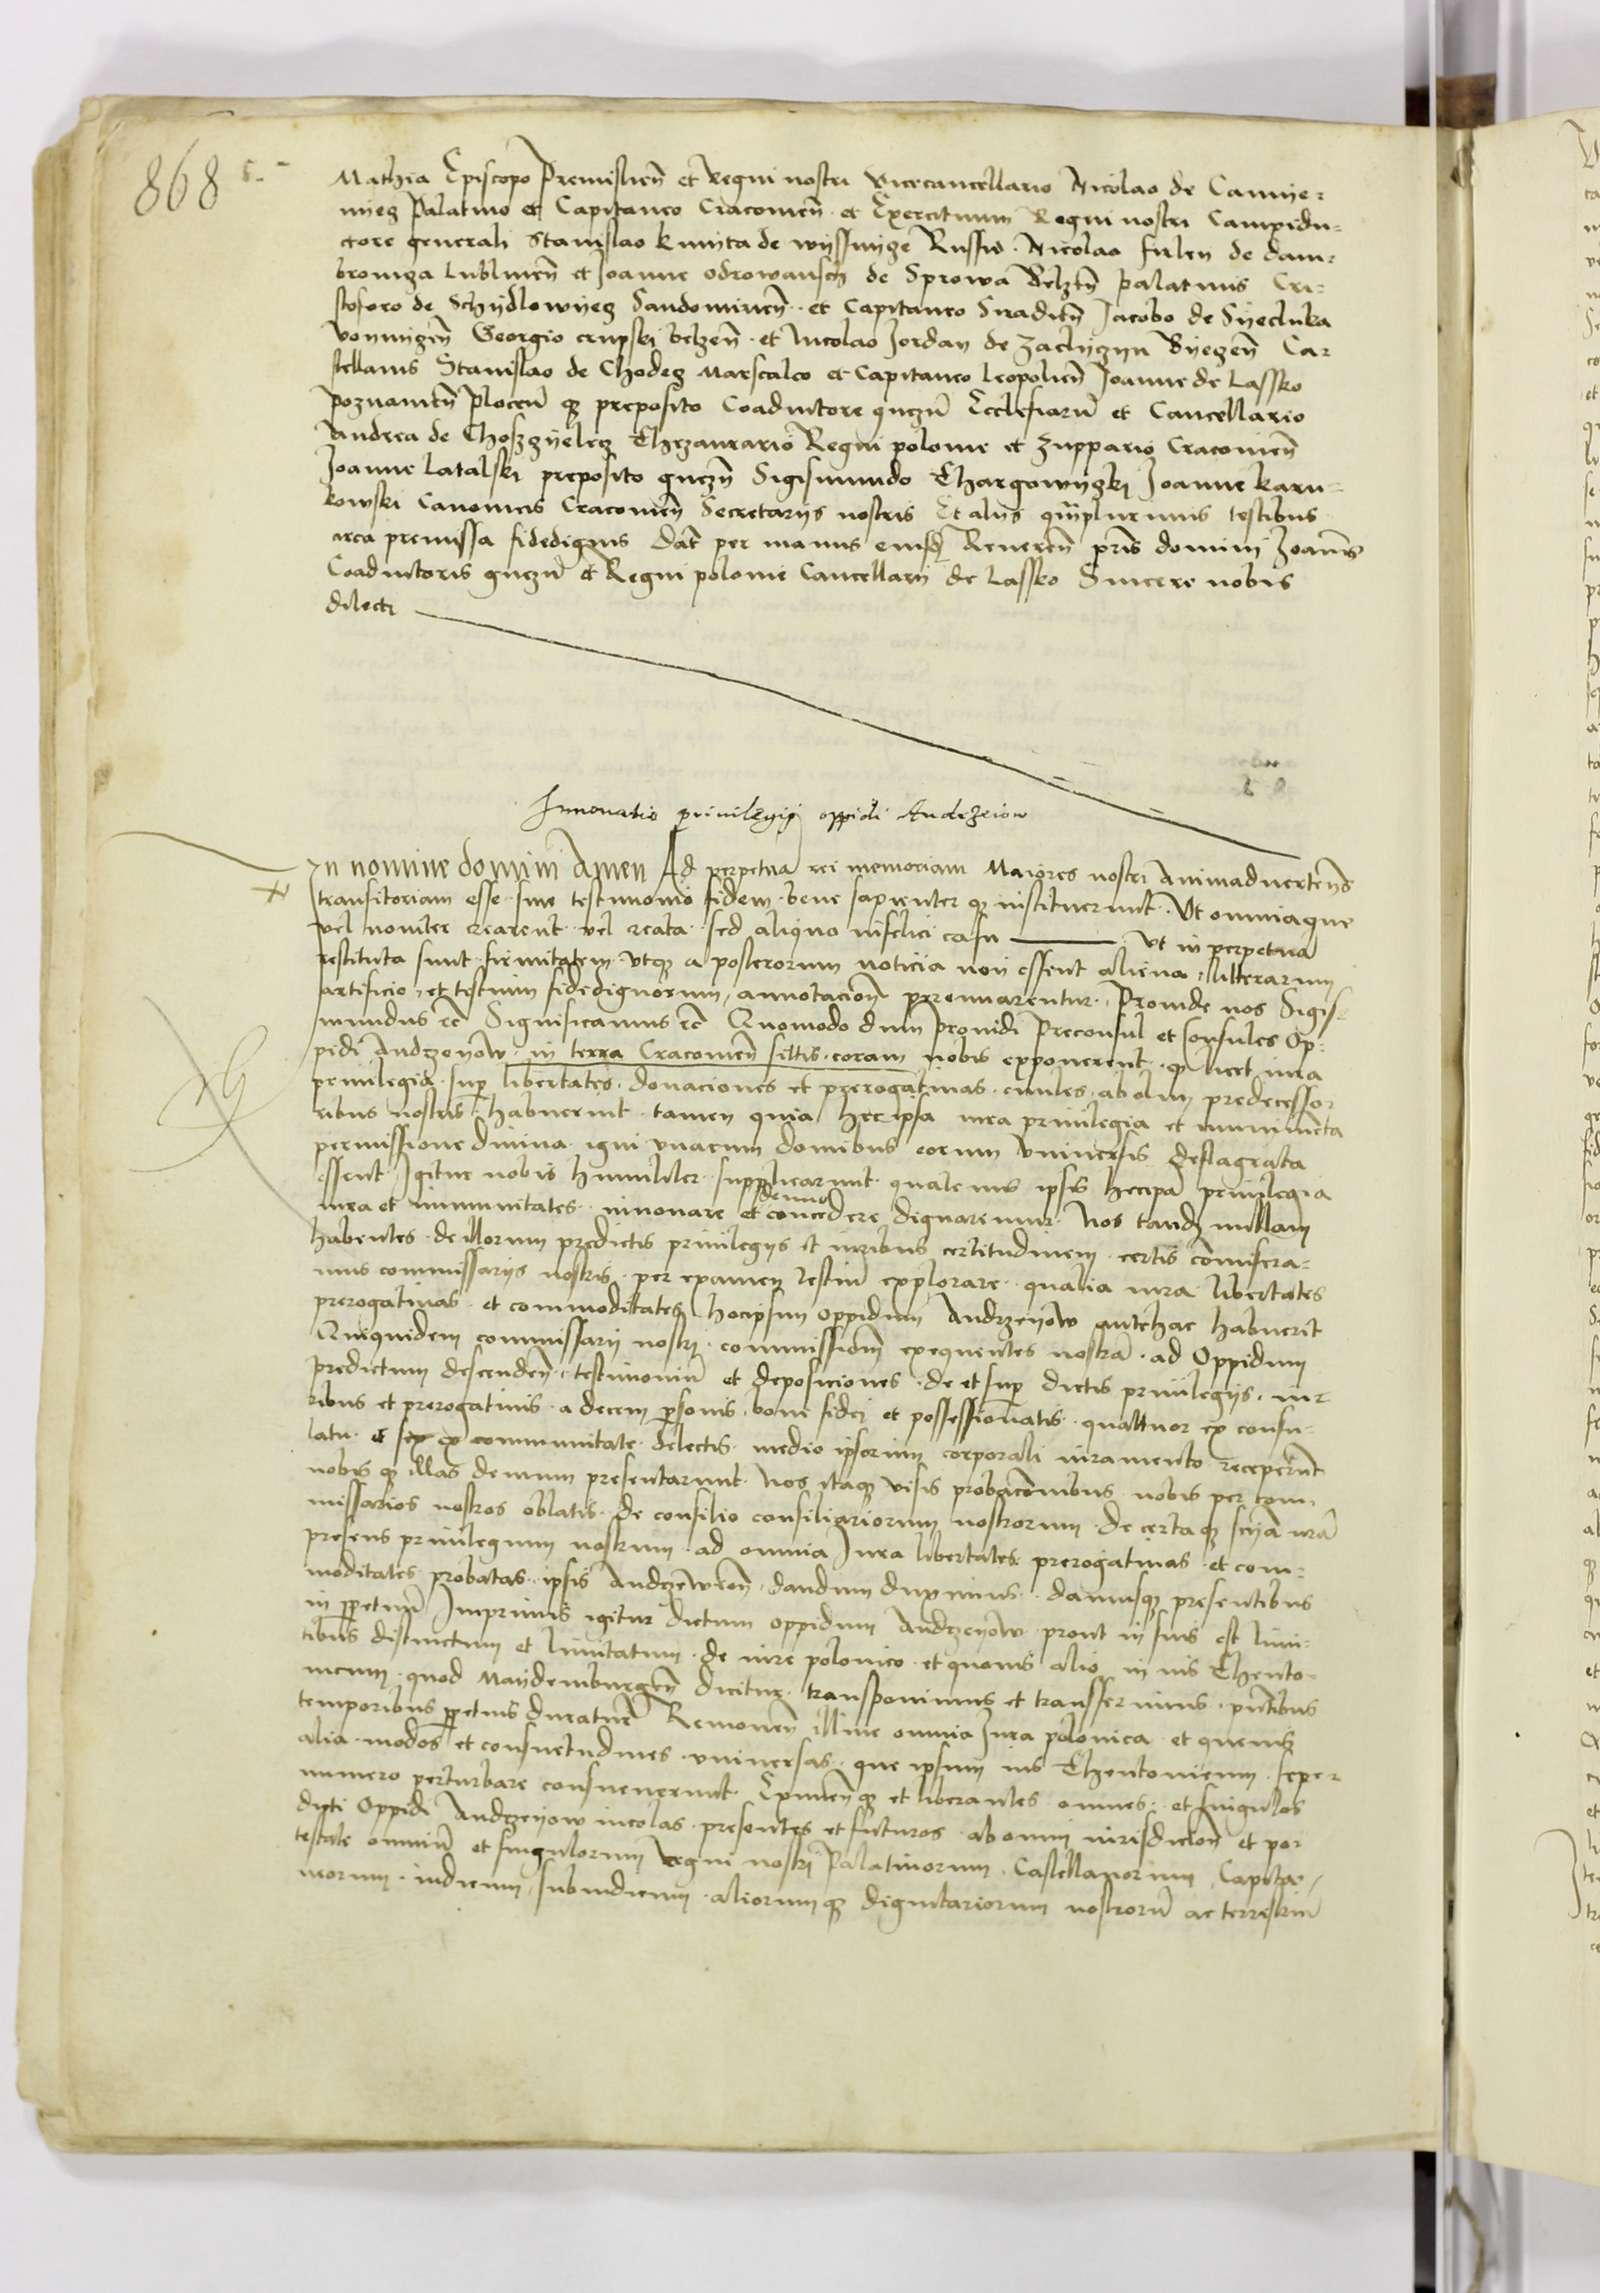 868
Mathia Episcopo Premislien̄ et regni nostri vicecancellario Nicolao de Camye-
nyeg palatino et Capitaneo Cracouien̄ et Exercituum Regni nostri Campidu-
ctore generali Stanislao kmyta de wyssnycze Russie . Nicolao firley de dam-
browycza lublinen̄ et Joanne odrowansch de Sprowa Belzen̄ palatinis Cri-
stoforo de Schydlowyeg Sandomirien̄ et Capitaneo Siradien̄ Jacobo de Syecluka
voynicen̄ Georgio crupski belzen̄ et Nicolao Jordan de zaclyczyn Byeczen̄ Ca-
stellanis Stanislao de Chodecz Marscalco et Capitaneo leopolien̄ Joanne de Lassko
poznanien̄ plocen̄ qz preposito Coadiutore gnezn̄ Ecclesiarū et Cancellario
Andrea de Choszczyelecz Thezaurario Regni polonie et zuppario Cracouien̄
Joanne latalski preposito gnezn̄ Sigismundo Thargowyczki Joanne karn-
kowski Canonicis Cracouien̄ Secretarijs nostris Et alijs q̄mplurimis testibus
circa premissa fidedignis Dat̄ per manus eiusdē Reueren̄ pr̄is domini Joan̄is
Coadiutoris gnezn̄ et Regni polonie Cancellarij de Lassko Sincere nobis
dilecti
Innouatio priuilegij oppidi Andrzeiow
In nomine domini Amen Ad perpetuā rei memoriam Maiores nostri Animaduertentes
transitoriam esse sine testimonio fidem bene sapienter qz instituerunt . Vt omnia que
vel nouiter crearent vel creata sed aliquo infelici casu ——— vt in perpetuā
restituta sunt firmitatem vtqz a posterorum noticia non essent aliena litterarum
artificio et testium fidedignorum annotacion̄ perennarentur . Proinde nos Sigis-
mundus etc̄ Significamus etc̄ Quomodo dum prouidi Preconsul et Consules Op-
pidi Andrzeyow in terra Cracouien̄ sitis coram nobis exponerent qz licet iura
priuilegia sup̄ libertates donaciones et prerogatiuas ciuiles ab olim predecesso-
ribus nostris habuerint tamen quia hec ipsa iura priuilegia et munimēta
permissione diuina igni vnacum domibus eorum vniuersis deflagrata
essent Igitur nobis humiliter supplicarunt quatenus ipsis hecip̄a priuilegia
iura et immunitates innouare et denuo concedere dignaremur . Nos tandē nullam
habentes de illorum predictis priuilegijs et iuribus certitudinem certis com̄isera-
mus commissarijs nostris per examen testiū explorare qualia iura libertates
prerogatiuas et commoditates hocipsum oppidum Andrzeyow antehac habuerit
Quiquidem commissarij nostri commission̄em exequentes nostrā ad Oppidum
predictum descenden̄ testimoniū et deposiciones de et sup̄ dictis priuilegijs iu-
ribus et prerogatiuis a decem p̄sonis bone fidei et possessionatis quattuor ex consu-
latu et sex ex communitate delectis medio ipsorum corporali iuramento receperūt
nobis qz illas demum presentarunt Nos itaqz visis probac̄onibus nobis per com-
missarios nostros oblatis de consilio consiliariorum nostrorum de certa qz sciā nr̄a
presens priuilegium nostrum ad omnia Iura libertates prerogatiuas et com-
moditates probatas ipsis Andrzeowien̄ dandum duximus damusqz presentibus
in p̄petuū Imprimis igitur dictum oppidum Andrzeyow prout in suis est limi-
tibus distinctum et limitatum de iure polonico et quouis alio in ius Theuto-
nicum quod Maydemburgen̄ dicitur transponimus et transferimus pn̄tibus
temporibus p̄petuis duraturē Remouen̄ illinc omnia Iura polonica et queuis
alia modos et consuetudines vniuersas que ipsum ius Theutonicum sepe-
numero perturbare consueuerunt Eximen̄qz et liberantes omnes et singulos
dicti Oppidi Andrzeyow incolas presentes et futuros ab omni iurisdicion̄ et po-
testate omniū et singulorum Regni nostri palatinorum Castellanorum Capita-
neorum iudicum subiudicum aliorumqz dignitariorum nostrorū ac terrestriū